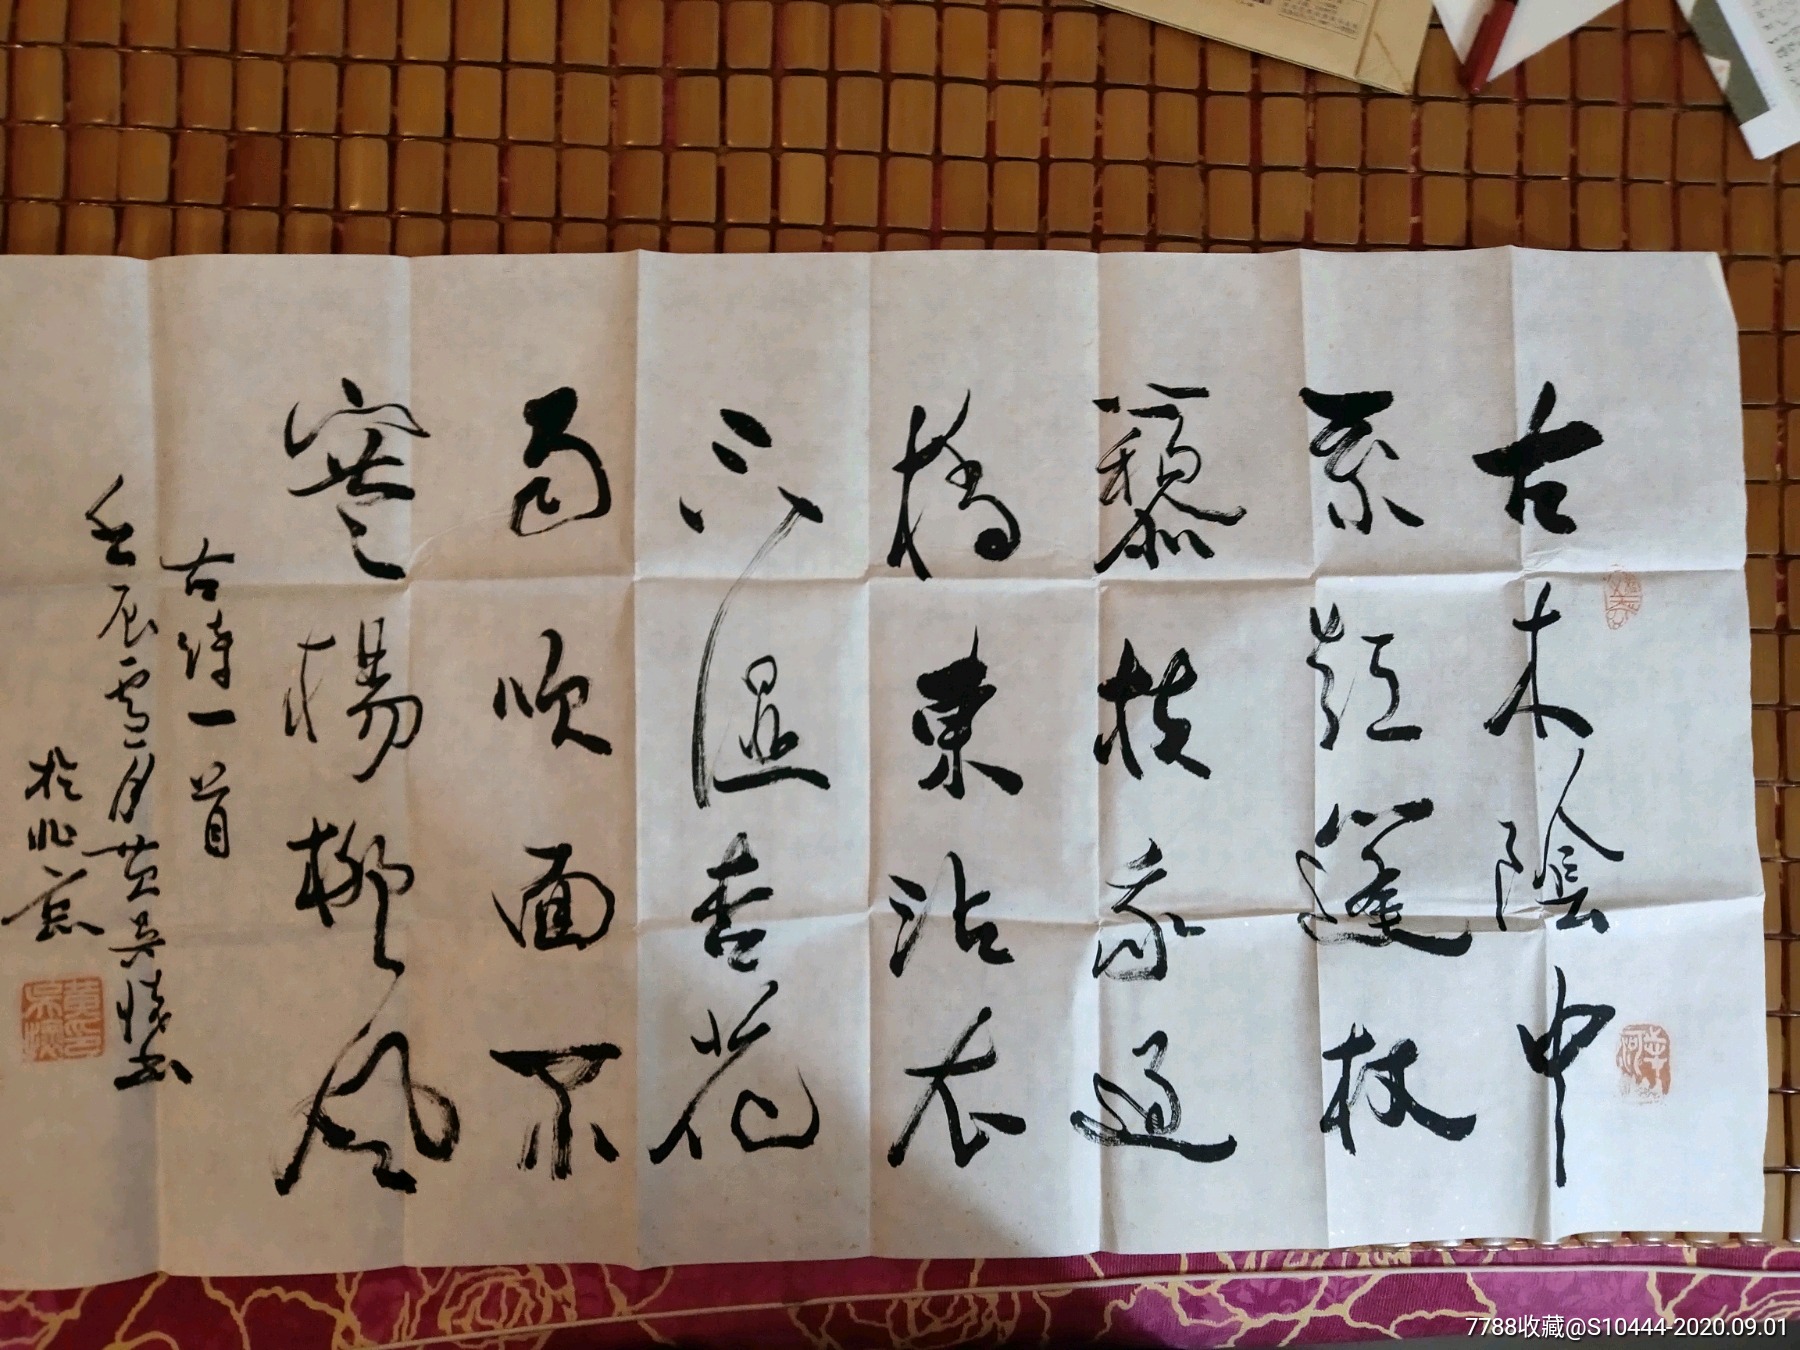 古木陰中
系短篷杖
藜扶我過
橋東沾衣
欲濕杏花
雨吹面不
寒楊柳風
古詩一首
壬辰雪月黃吳懷书
於北京
7788收藏@S10444-2020.09.01